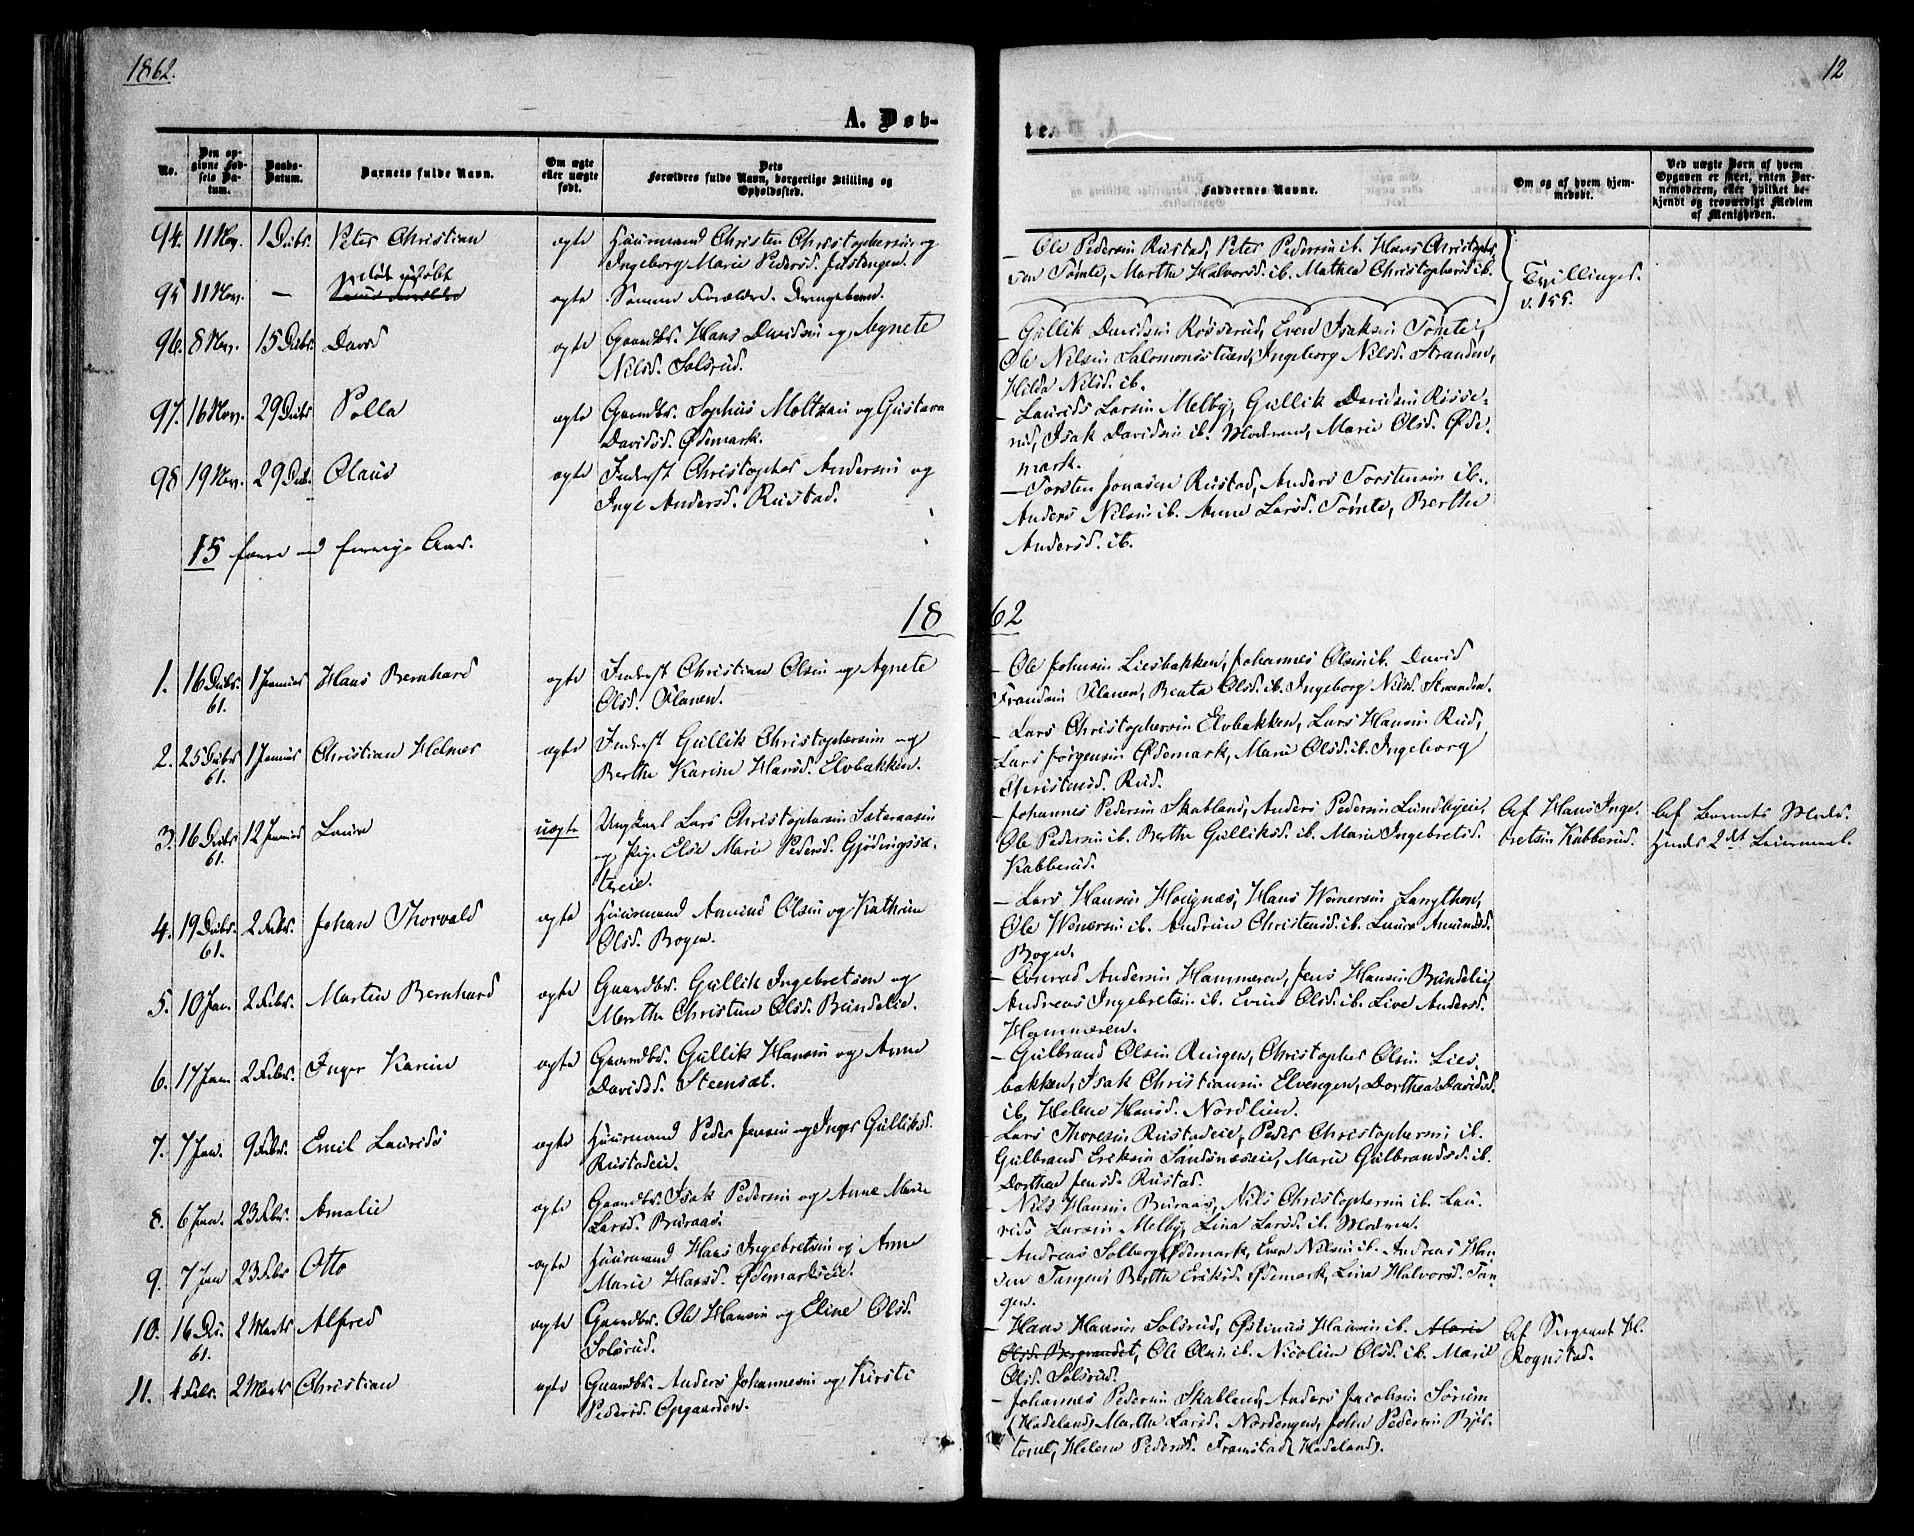 1862.
12
A. Døb-
te.
No.
Den opgivne Fødsels Datum.
Daabs-Datum.
Barnets fulde Navn.
Om ægte eller uægte født.
Dets Forældres fulde Navn, borgerlige Stilling og Opholdssted.
Faddernes Navne.
Om og af hvem hjemmedøbt.
Ved uægte Børn af hvem Opgaven er skeet, enten Barnemoderen, eller hvilket bekjendt og troværdigt Medlem af Menigheden.
94. 11 Nov. 1 Decbr. Peter Christian ægte Huusmand Christen Christophersen og
Ingeborg Marie Pedersd.
– Ole Pedersen Rustad, Peter Pedersen ib. Hans Christophersen
Tømte, Marthe Halvorsd. ib. Mathea Christophersd. ib.
Tvillinger.
v. 155.
95. 11 Nov. – udøbt ægte Samme Forældre. Drengebarn.
96. 8 Nov. 15 Decbr. David ægte Gaardbr. Hans Davidsen og Agnete
Nilsd. Solsrud.
– Gullik Davidsen Røsserud, Even Isaksen Tømte,
Ole Nilsen Salomonsstuen, Ingeborg Nilsd. Stranden,
Hilda Nilsd. ib.
97. 16 Nov. 29 Decbr. Polla ægte Gaardbr. Sophus Moltzau og Gustava
Davidsd. Ødemark.
– Laurids Larsen Melby, Gullik Davidsen Røsse-
rud, Isak Davidsen ib. Moderen, Marie Olsd. Øde-
mark.
98. 19 Nov. 29 Decbr. Olaus ægte Inderst Christopher Andersen og
Inge Andersd. Rustad.
– Torsten Jonasen Rustad, Anders Torstensen ib.,
Anders Nilsen ib. Anne Larsd. Tømte, Berthe
Andersd. ib.
15 forrige Aar.
1862
1. 16 Decbr. 61. 1 Januar Hans Bernhard ægte Inderst Christian Olsen og Agnete
Olsd.
– Ole Johnsen Liesbakken, Johannes Olsen ib. David
Frandsen Beata Olsd. ib. Ingeborg Nilsd. Stranden.
2. 25 Decbr 61. 1 Januar Christian Helmer ægte Inderst Gullik Christophersen og
Berthe Karine Hansd. Elvbakken.
– Lars Christophersen Elvbakken, Lars Hansen Rud,
Lars Jørgensen Ødemark, Marie Olsd. ib. Ingeborg
Christensd. Rud.
3. 16 Decbr 61. 12 Januar Laura uægte Ungkarl Lars Christophersen Sæteraasen
og Pige Else Marie Pedersd. Gjødingssæ-
treie.
– Johannes Pedersen Skabland, Anders Pedersen Lundbyeie,
Ole Pedersen ib. Berthe Gulliksd. ib. Marie Ingebretsd.
Kabberud.
Af Hans Inge-
bretsen Kabberud.
Af Barnets Moder.
Hendes 2det Leiermaal.
4. 19 Decbr. 61. 2 Febr. Johan Thorvald ægte Huusmand Amund Olsen og Kathrine
Olsd. Bogen.
– Lars Hansen Hougnæs, Hans Wernersen Langthon,
Ole Wernersen ib. Andrine Christensd. ib. Laura Amundsd.
Bogen.
5. 10 Jan. 2 Febr. Martin Bernhard ægte Gaardbr. Gullik Ingebretsen og
Marthe Christine Olsd. Bundelie.
– Conrad Andersen Hammeren, Jens Hansen Bundelie,
Andreas Ingebretsen ib. Eline Olsd. ib. Live Andersd.
Hammeren.
6. 17 Jan. 2 Febr. Inger Karine ægte Gaardbr. Gullik Hansen og Anne
Davidsd. Steensæt.
– Gulbrand Olsen Ringen, Christopher Olsen Lies-
bakken, Isak Christiansen Elvengen, Dorthea Davidsd.
ib. Helene Hansd. Nordlien.
7. 7 Jan. 9 Febr. Emil Laurids ægte Huusmand Peder Jensen og Inger Gulliksd.
Rustadeie.
Lars Thoresen Rustadeie, Peder Christophersen ib.
Gulbrand Eriksen Sandsnæseie, Marie Gulbrandsd. ib.
Dorthea Jensd. Rustad.
8. 6 Jan. 23 Febr. Amalie ægte Gaardbr. Isak Pedersen og Anne Marie
Larsd. Buraas.
– Nils Hansen Buraas, Nils Christophersen ib. Lau-
rids Larsen Melby, Lina Larsd. ib. Moderen.
9. 7 Jan 23 Febr Otto ægte Huusmand Hans Ingebretsen og Anne
Marie Hansd. Ødemarkseie.
– Andreas Solberg Ødemark, Even Nilsen ib. Andreas Han-
sen Tangen, Berthe Eriksd. Ødemark, Lina Halvorsd. Tan-
gen.
10. 16 Dec. 61. 2 Marts Alfred ægte Gaardbr. Ole Hansen og Eline Olsd.
Solsrud.
– Hans Hansen Solsrud, Østinus Hansen ib. Marie
Olsd. Ole Olsen ib. Nicoline Olsd. ib. Marie
Olsd. Solsrud.
Af Sergeant H.
Rognstad.
11. 1 Febr. 2 Marts Christian ægte Gaardbr. Anders Johannesen og Kirsti
Pedersd. Opgaarden.
– Johannes Pedersen Skabland, Anders Jacobsen Sørum
(Hadeland) Marthe Larsd. Nordengen, John Pedersen Bjør-
tomt, Helene Pedersd. Framstad (Hadeland).